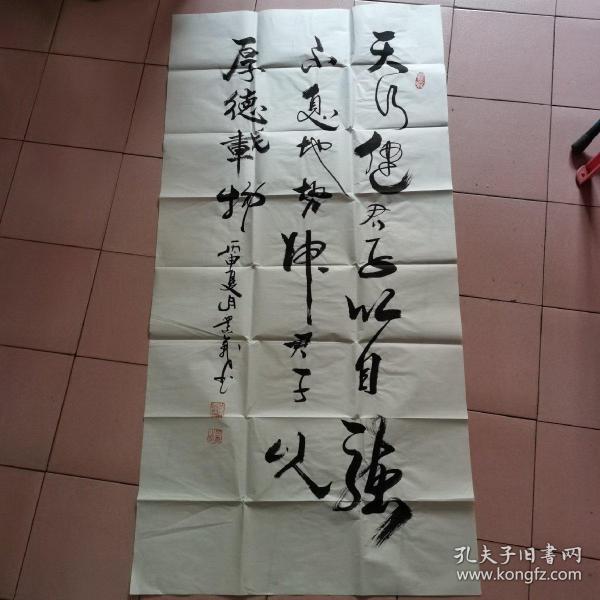 天行健君子以自強
不息地势坤君子以
厚德載物
丙申夏月
书
孔夫子旧书网
www.kongfz.com